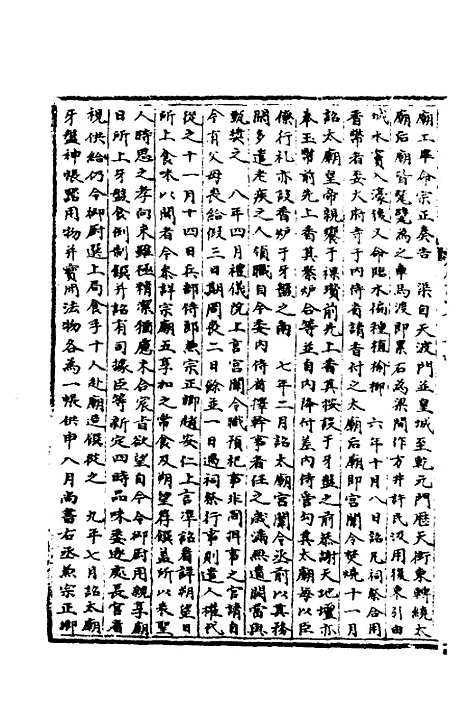 廟工畢命宗正奏告　渠自天波門並皇城至乾元門歷天街東轉繞太
廟后廟皆甃甓為之車馬渡即累石為梁間作方井許民汲用復東引由
城水竇入濠後又命臨水偏種植榆柳　六年十月八日詔凡祠祭合用
香幣者委大府寺于内侍省請香付之太廟后廟即宮闈令焚燒十一月
詔太廟皇帝親饗于祼瓚前先上香其香案設于牙盤之前恭謝天地壇亦
奉玉幣前先上香其案炉合等並自内降付差内侍管勾其太廟每以臣
僚行礼亦設香炉于牙盤之南　七年二月詔太廟宮闈令丞前以真務
閑多遣老疾之人領職自今委内侍省擇幹事者任之歲滿無遺闕當與
甄獎之　八年四月禮儀院上言宮闈令職預祀事非同掌事之官請自
今有父母喪給假三日期周㓛二日餘並一日遇祠祭行事則遣人權代
從之十一月十四日兵部侍郎兼宗正卿趙安仁上言準詔看詳朔望日
所上食味以聞者今恭詳宗廟五享加之常食及朔望荐饌蓋所以表聖
人時思之孝向來雖極精潔猶慮未合宸旨欲望自今令御厨用親享廟
日所上牙盤食例制饌并詔有司據臣等新定四時品味委逐處長官看
視供給仍令御厨選上局食手十人赴廟造饌從之　九年七月詔太廟
牙盤神帳諸用物并寶用法物各為一帳供申八月尚書右丞兼宗正卿